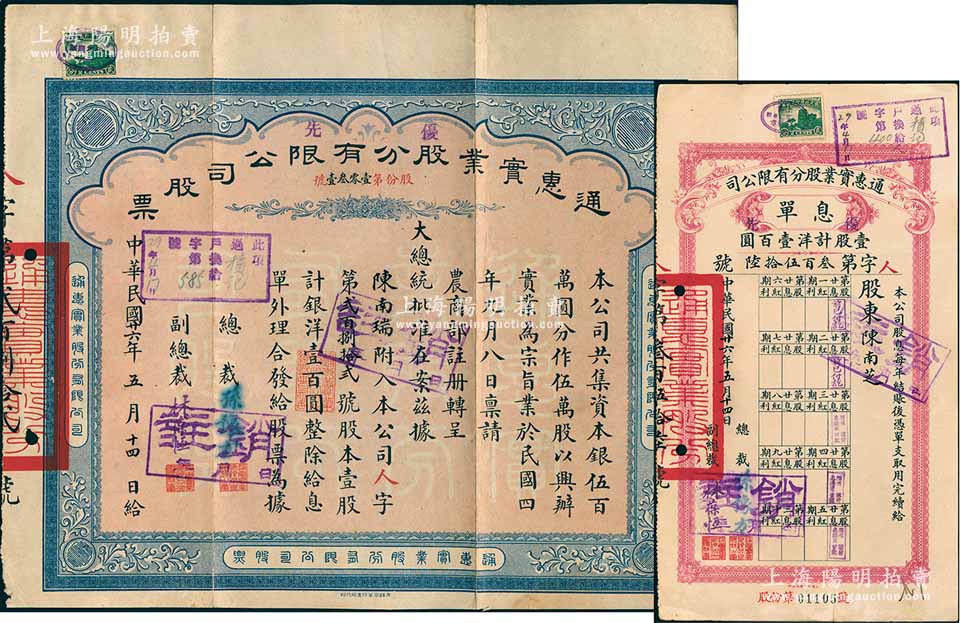 上海陽明拍賣
www.yangmingauction.com
優先
通惠實業股分有限公司股票
股份第壹零叁壹號
本公司共集資本銀伍百
萬圓分作伍萬股以興辦
實業為宗旨業於民國四
年九月八日稟請
農商部註册轉呈
大總統批准在案茲據
陳南瑞附入本公司人字
第貳百捌拾貳號股本壹股
計銀洋壹百圓整除給息
單外理合發給股票為據
總裁
副總裁
中華民國廿六年五月十四日給
此項
過
戶換給
字第
號
585
通惠實業股分有限公司股票
通惠實業股分有限公司
優先
息單
壹股計洋壹百圓
人字第叁百伍拾陸號
本公司股息每年結賬後憑單支取用完續給
股東陳南芝
第廿一期股息紅利
第廿二期股息紅利
第廿三期股息紅利
第廿四期股息紅利
第廿五期股息紅利
第廿六期股息紅利
第廿七期股息紅利
第廿八期股息紅利
第廿九期股息紅利
總裁
副總裁
中華民國廿六年五月廿四日
此項
過
戶換給
字第
號
註銷
01105
上海陽明拍賣
www.yangmingauction.com